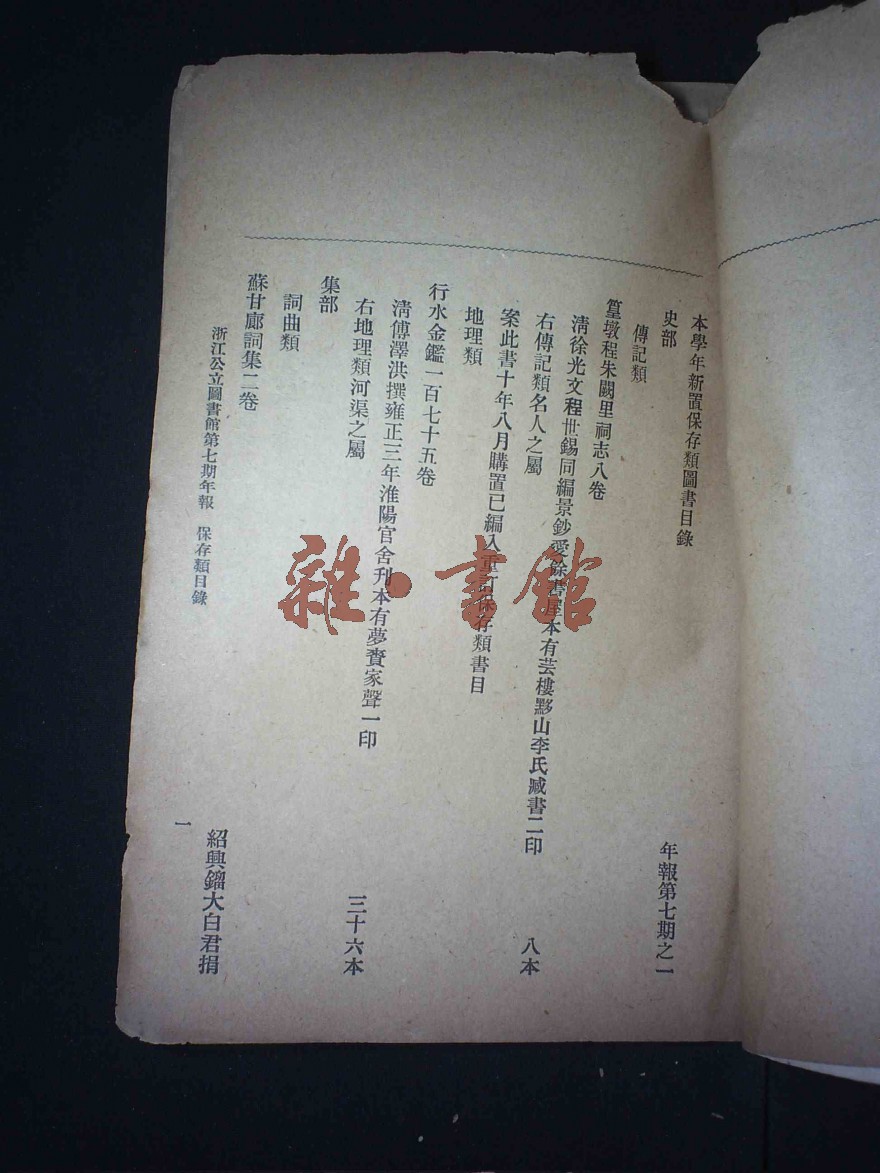 本學年新置保存類圖書目錄
年報第七期之一
史部
傳記類
篁墩程朱闕里祠志八卷
清徐光文程世錫同編景鈔愛餘書屋本有芸樓黟山李氏臧書二印
八本
右傳記類名人之屬
案此書十年八月購置已編入重訂保存類書目
地理類
行水金鑑一百七十五卷
清傅澤洪撰雍正三年淮陽官舍刊本有夢賚家聲一印
三十六本
右地理類河渠之屬
集部
詞曲類
蘇甘廊詞集二卷
紹興鎦大白君捐
浙江公立圖書館第七期年報 保存類目錄
一
雜·書館